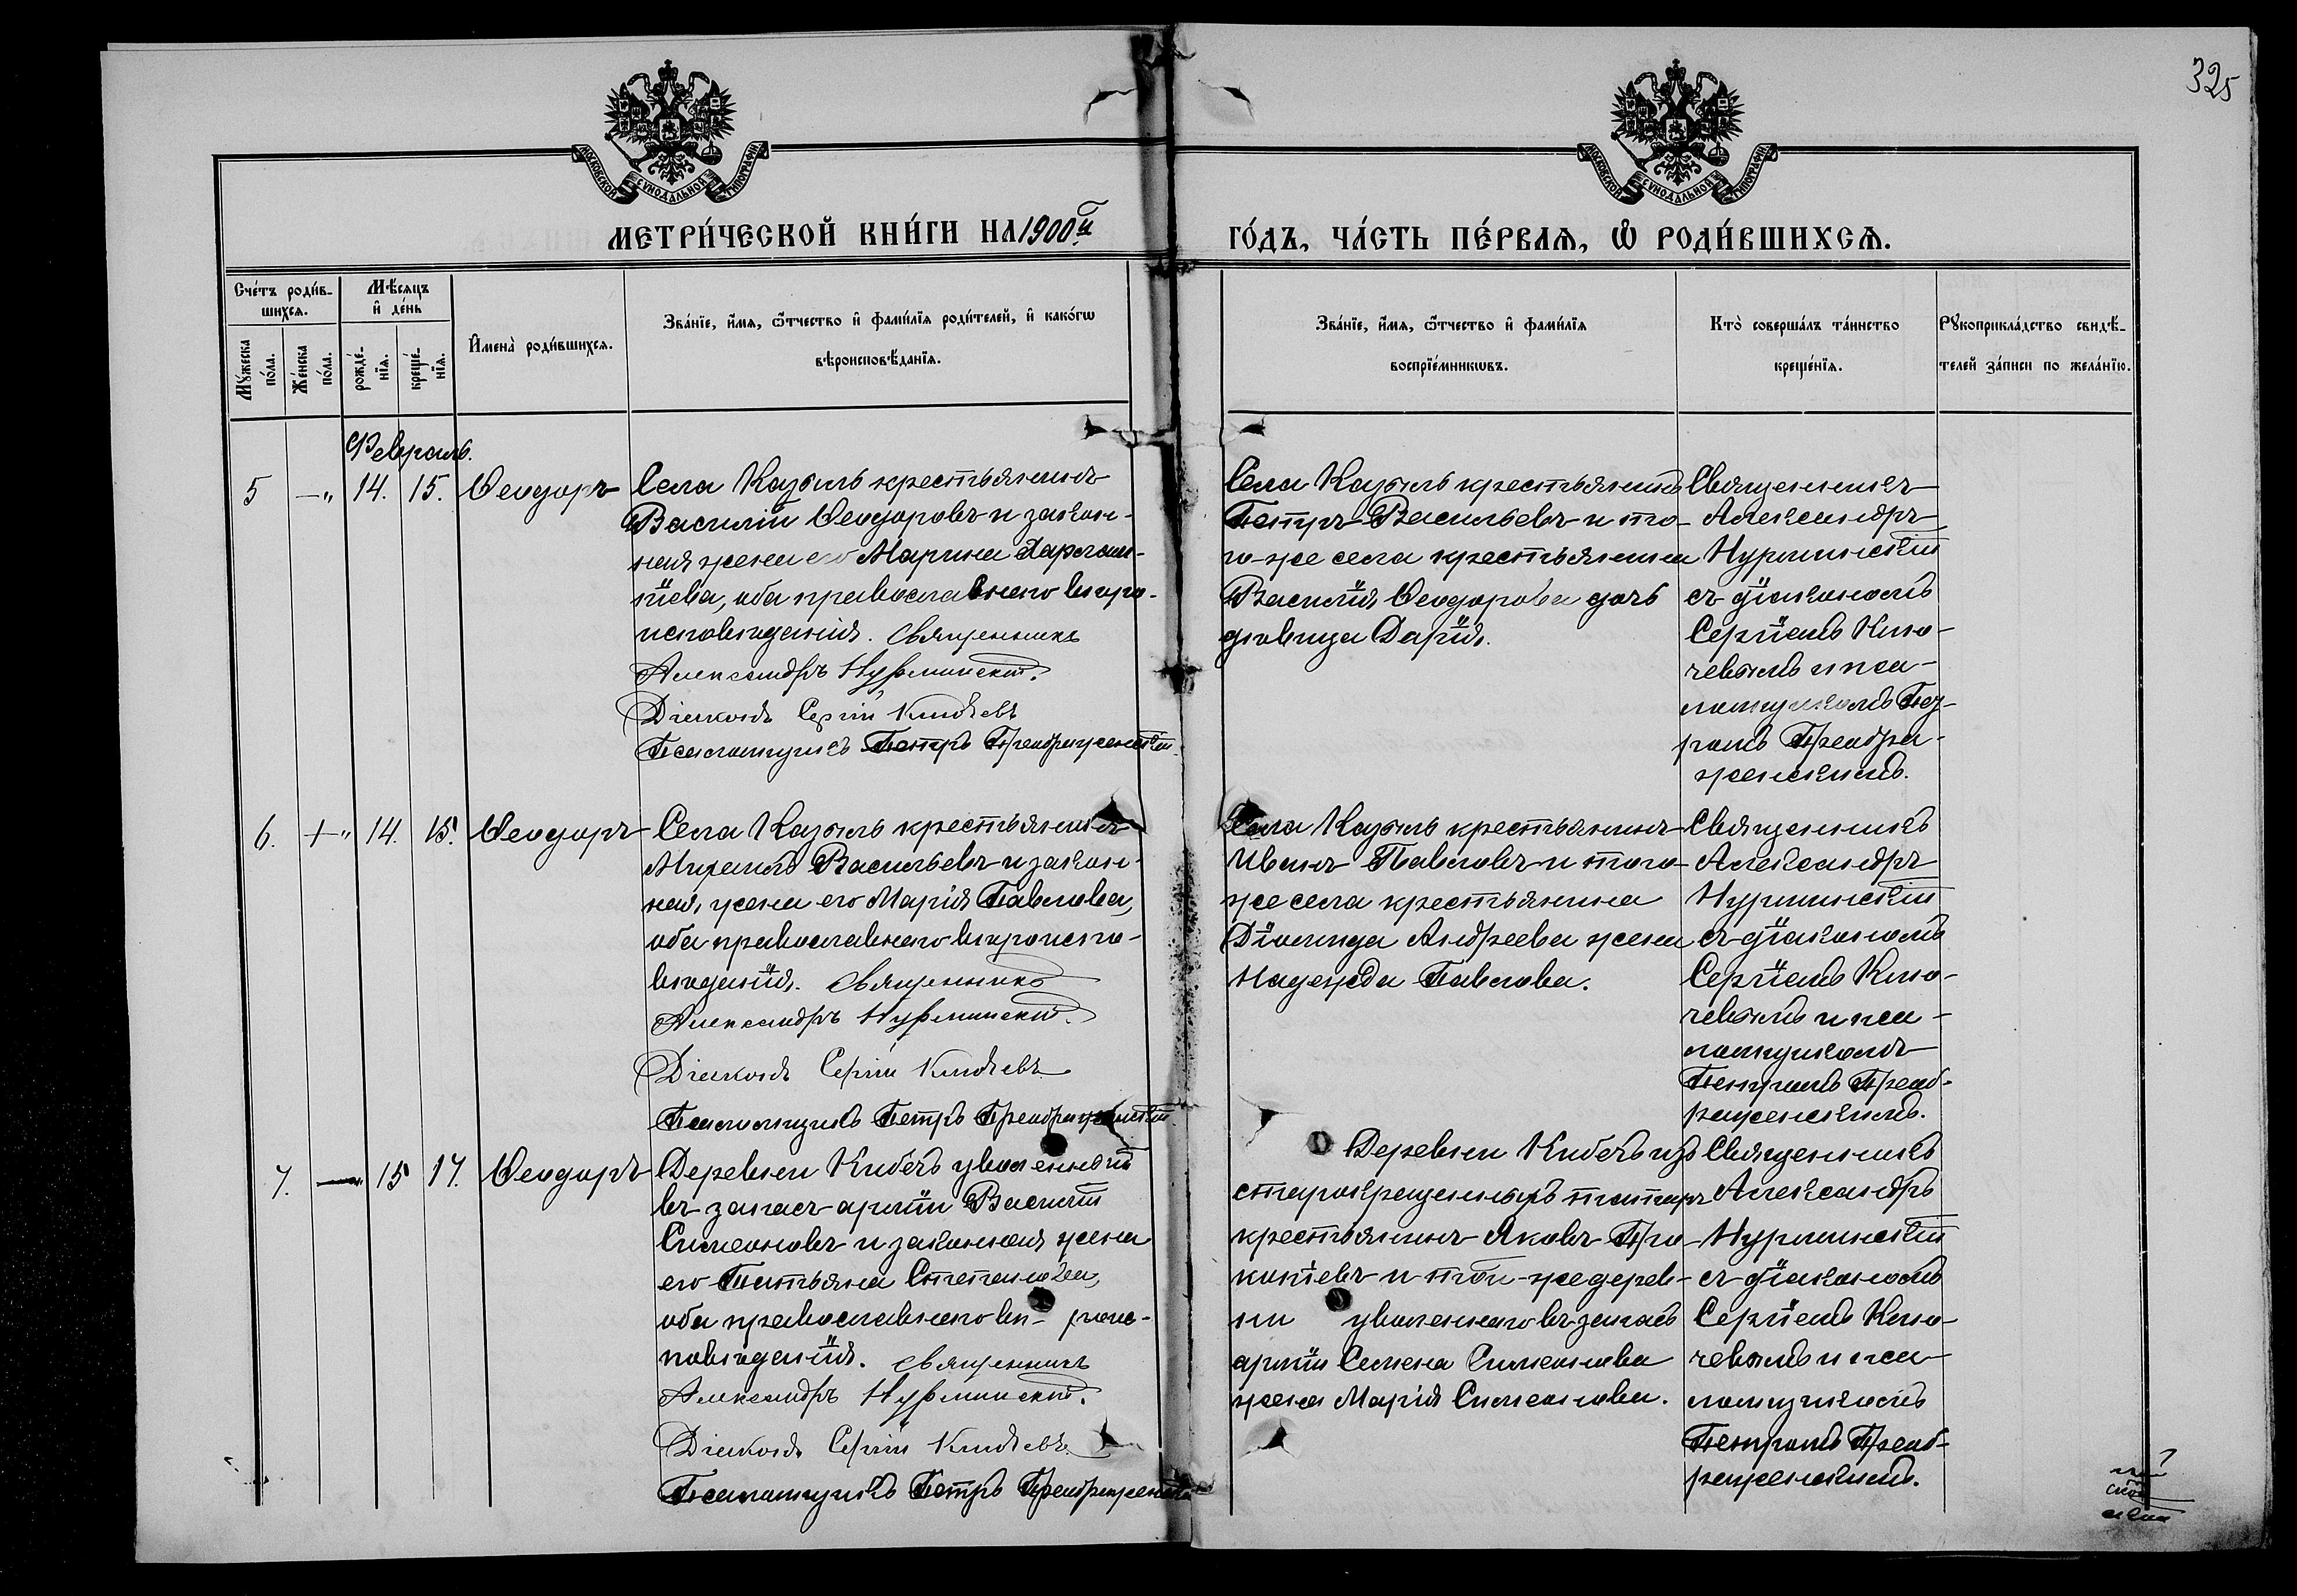 325
МОСКОВСКОЙ СѴНОДАЛЬНОЙ ТИПОГРАФІИ
МОСКОВСКОЙ СѴНОДАЛЬНОЙ ТИПОГРАФІИ
МЕТРИ́ЧЕСКОЙ КНИ́ГИ НА 1900й
ГО́ДЪ, ЧА́СТЬ ПЕ́РВАѦ, Ѽ РОДИ́ВШИХСѦ.
Сче́тъ роди́в-
шихсѧ.
Мѣ́сѧцъ
и҆ де́нь
Мꙋ́жеска
по́ла.
Же́нска
по́ла.
рожде́-
нїѧ.
креще́-
нїѧ.
И҆мена̀ роди́вшихсѧ.
Зва́нїе, и҆́мѧ, ѻ҆́тчество и҆ фами́лїѧ роди́телей, и҆ како́гѡ
вѣроисповѣ́данїѧ.
Зва́нїе, и҆́мѧ, ѻ҆́тчество и҆ фами́лїѧ
воспрїе́мникѡвъ.
Кто̀ соверша́лъ та́инство
креще́нїѧ.
Рꙋкоприкла́дство свидѣ́-
телей за́писи по жела́нїю.
Февраль.
5 —„ 14. 15. Ѳеодоръ
Села Казыль крестьянинъ
Василій Ѳеодоровъ и закон-
ная жена его Марина Харлам-
піева, оба православнаго вѣро-
исповѣданія. Священникъ
Александръ Нурминскій.
Діаконъ Сергій Ключевъ
Псаломщикъ Петръ Преображенскій.
Села Казыль крестьянинъ
Петръ Васильевъ и то-
го-же села крестьянина
Василія Ѳеодорова дочь
дѣвица Дарія.
Священникъ
Александръ
Нурминскій
съ діакономъ
Сергіемъ Клю-
чевымъ и пса-
ломщикомъ Пет-
ромъ Преобра-
женскимъ.
6. +„ 14. 15. Ѳеодоръ
Села Казыль крестьянинъ
Васильевъ и закон-
ная жена его Марія Павлова,
оба православнаго вѣроиспо-
вѣданія. Священникъ
Александръ Нурминскій.
Діаконъ Сергій Ключевъ
Псаломщикъ Петръ Преображенскій
Села Казыль крестьянинъ
Иванъ Павловъ и того
же села крестьянина
Діомида Андреева жена
Надежда Павлова.
Священникъ
Александръ
Нурминскій
съ діакономъ
Сергіемъ Клю-
чевымъ и пса-
ломщикомъ
Петромъ Преоб-
раженскимъ.
7. — 15 17. Ѳеодоръ
Деревни Кибечь уволенный
въ запасъ арміи Василій
Симеоновъ и законная жена
его Татьяна Степанова,
оба православнаго вѣ- роис-
повѣданія. Священникъ
Александръ Нурминскій.
Діаконъ Сергій Ключевъ
Псаломщикъ Петръ Преображенскій
Деревни Кибечь изъ
старокрещенныхъ татаръ
крестьянинъ Яковъ Про-
копіевъ и той-же дерев-
ни уволеннаго въ запасъ
арміи Семена Симеонова
жена Марія Симеонова.
Священникъ
Александръ
Нурминскій
съ діакономъ
Сергіемъ Клю-
чевымъ и пса-
ломщикомъ
Петромъ Преоб-
раженскимъ.